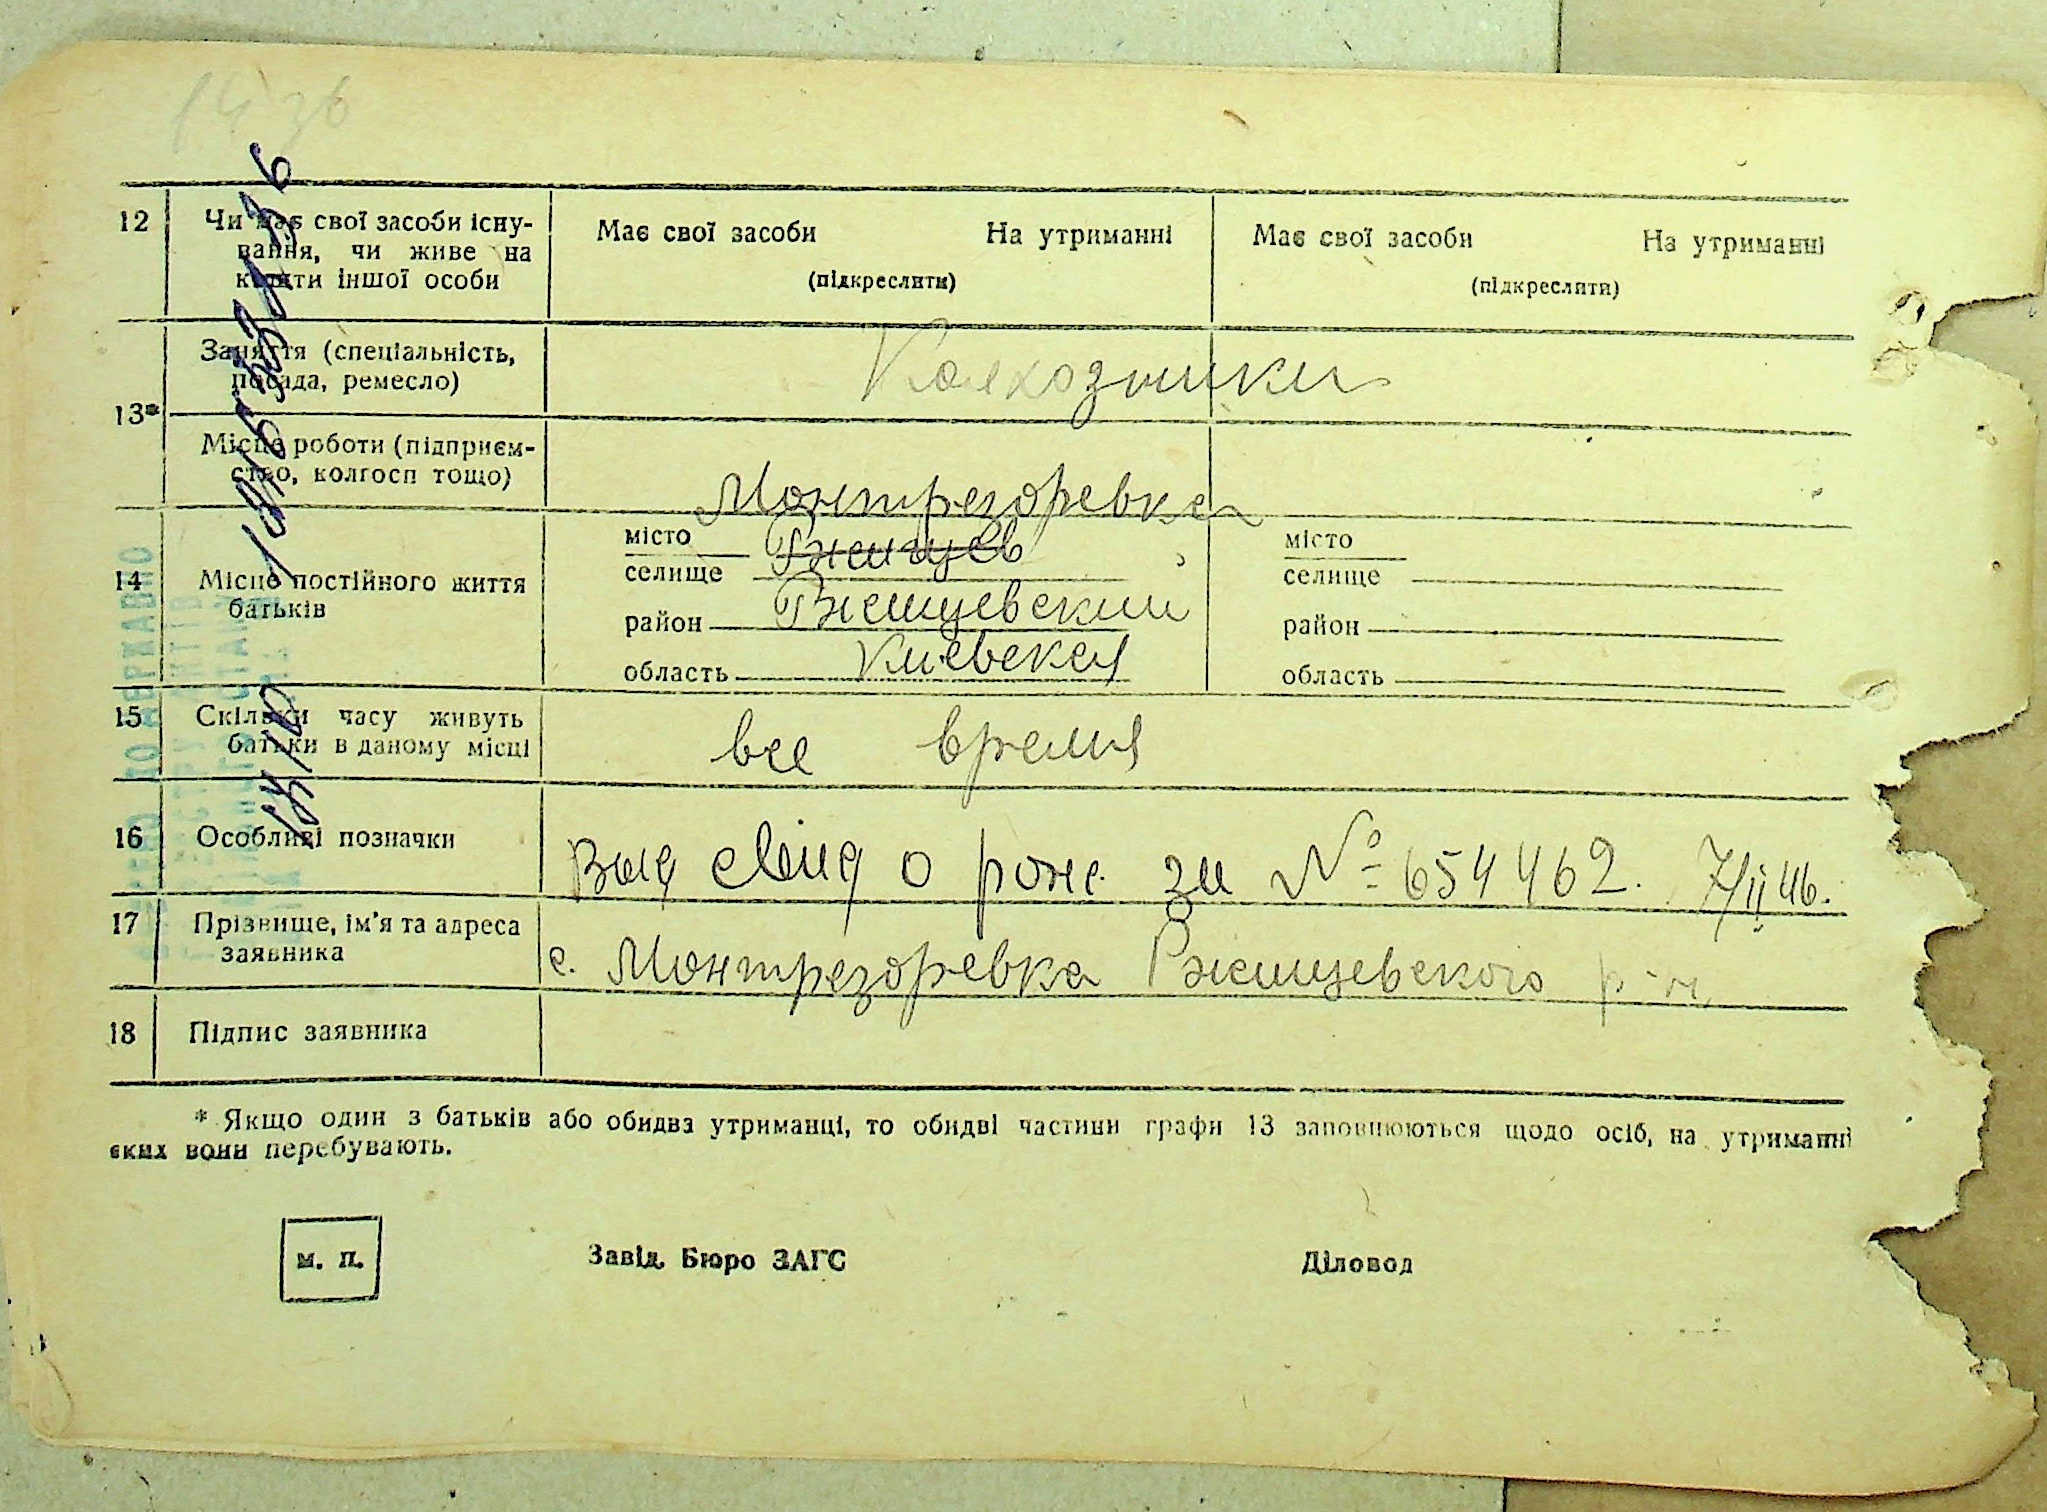 14 зв
12
Чи має свої засоби існу-
вання, чи живе на
кошти іншої особи
Має свої засоби На утриманні
(підкреслити)
Має свої засоби На утриманні
(підкреслити)
13*
Заняття (спеціальність,
посада, ремесло)
Колхозники
Місце роботи (підприєм-
ство, колгосп тощо)
14
Місце постійного життя
батьків
Монтрезоревка
місто Ржищев
селище
район Ржищевский
область Киевская
місто
селище
район
область
15
Скільки часу живуть
батьки в даному місці
все время
16
Особливі позначки
Выд свид о рожд. за № 654462. 7/II 46.
17
Прізвище, ім'я та адреса
заявника
с. Монтрезоревка Ржищевского р-н
18
Підпис заявника
* Якщо один з батьків або обидва утриманці, то обидві частини графи 13 заповнюються щодо осіб, на утриманні
яких вони перебувають.
м. п.
Завід. Бюро ЗАГС
Діловод